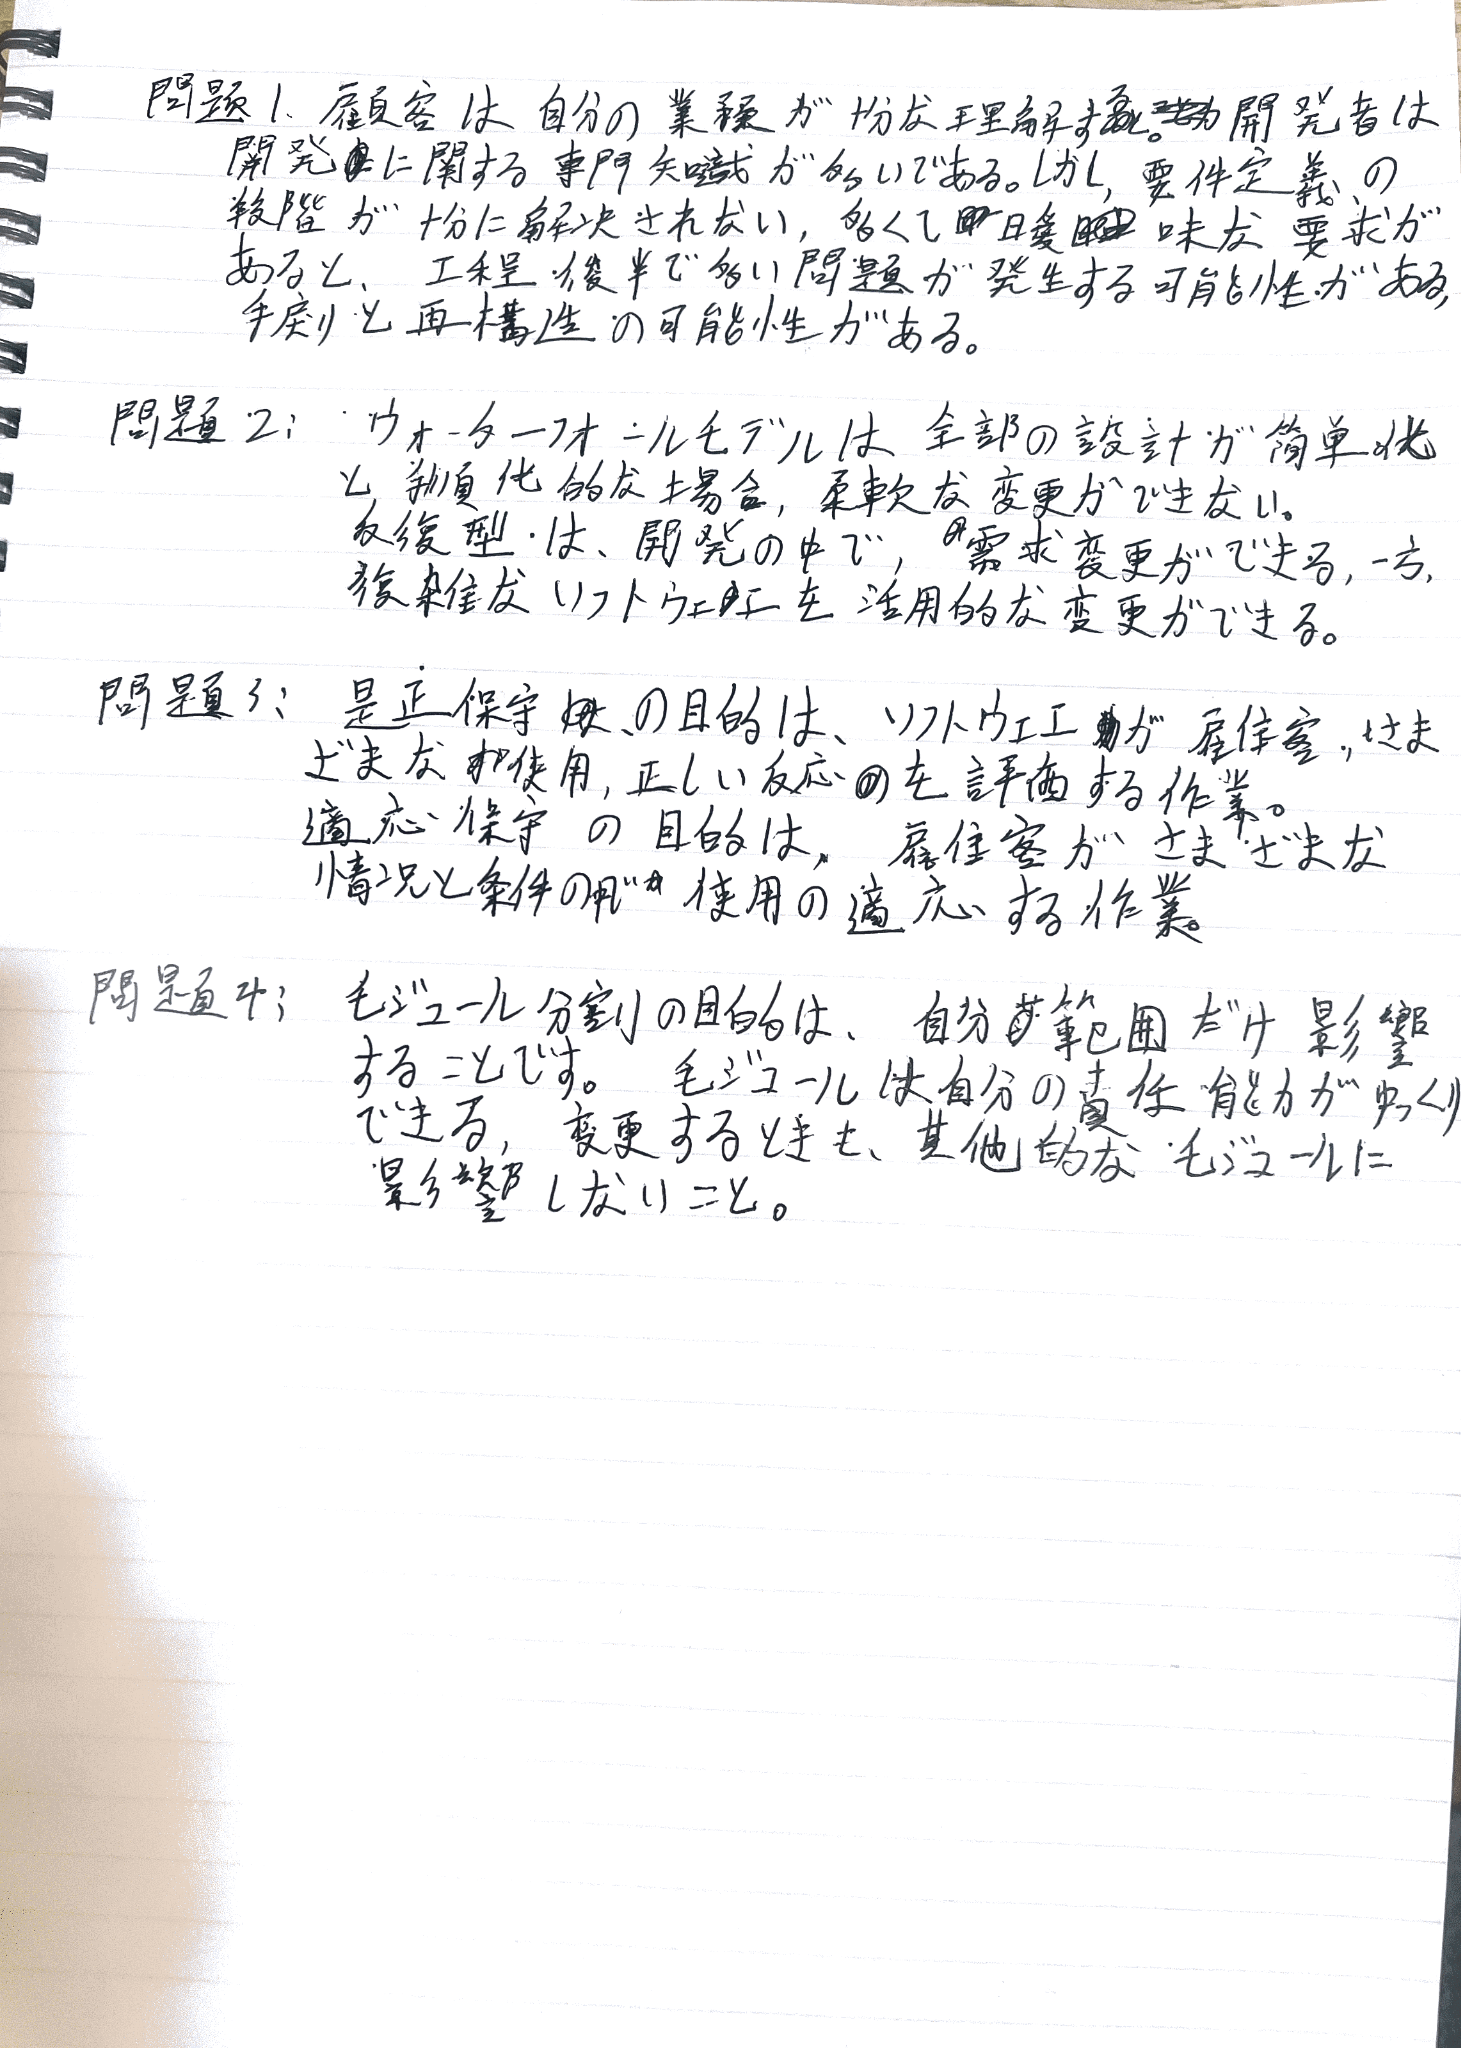 問題1. 顧客は自分の業種が十分な理解する。開発者は
開発に関する専門知識が多いである。しかし, 要件定義の
段階が十分に解決されない, 多くて曖味な要求が
あると、工程後半で多い問題が発生する可能性がある,
手戻りと再構造の可能性がある。
問題2: ウォーターフォールモデルは全部の設計が簡単化
と順化的な場合, 柔軟な変更ができない。
反復型は、開発の中で, 需求変更ができる, 一方,
復雑なソフトウェエを活用的な変更ができる。
問題3: 是正保守の目的は、ソフトウェエが雇住客, さま
ざまな使用, 正しい反応を評価する作業。
適応保守の目的は、雇住客がさまざまな
情況と条件の使用の適応する作業。
問題4: モジュール分割の目的は、自分範囲だけ影響
することです。モジュールは自分の責任能力がゆっくり
できる, 変更するときも、其他的なモジュールに
影響しないこと。